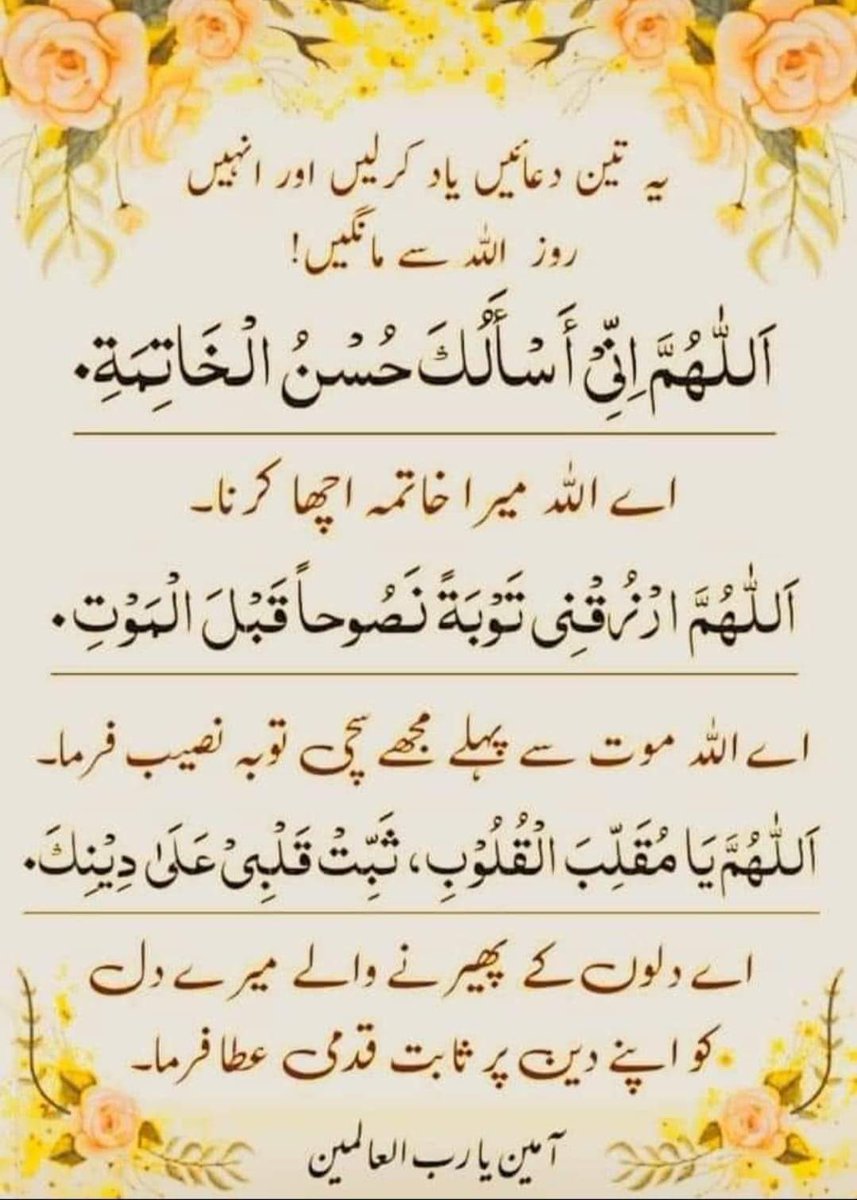 یہ تین دعائیں یاد کرلیں اور انہیں
روز اللہ سے مانگیں!
اَللّٰهُمَّ اِنِّيْ أَسْأَلُكَ حُسْنُ الْخَاتِمَةِ۰
اے اللہ میرا خاتمہ اچھا کرنا۔
اَللّٰهُمَّ ارْزُقْنِی تَوْبَةً نَصُوحاً قَبْلَ الْمَوْتِ۰
اے اللہ موت سے پہلے مجھے سچی توبہ نصیب فرما۔
اَللّٰهُمَّ يَا مُقَلِّبَ الْقُلُوْبِ، ثَبِّتْ قَلْبِیْ عَلَیٰ دِيْنِكَ۰
اے دلوں کے پھیرنے والے میرے دل
کو اپنے دین پر ثابت قدمی عطا فرما۔
آمین یا رب العالمین